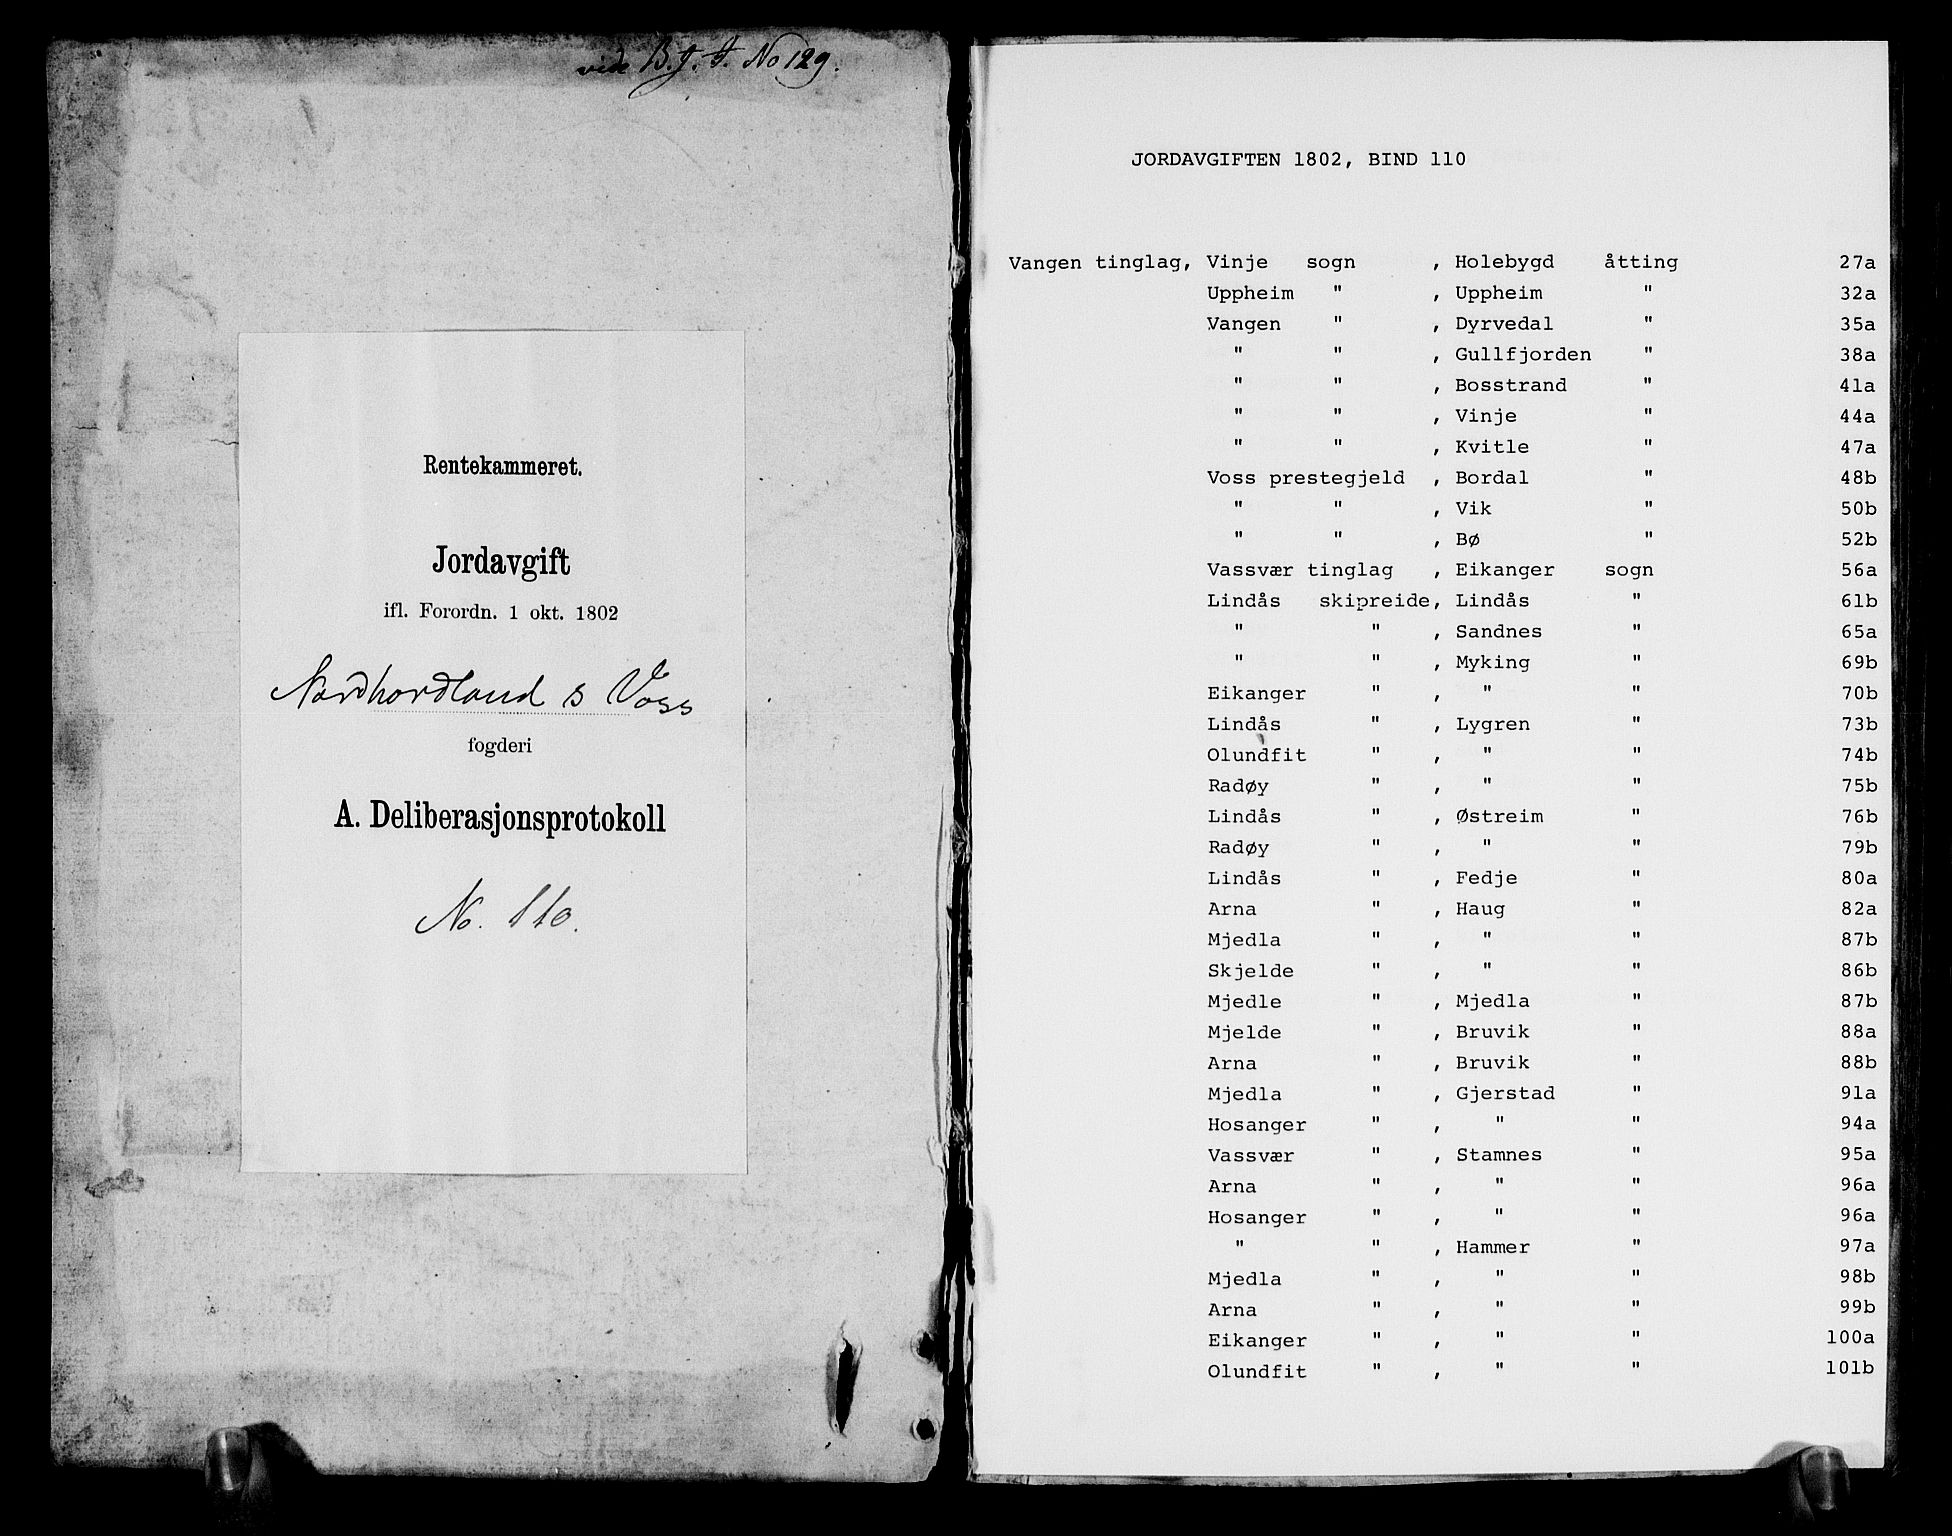 vide B. J. F. No 129.
Rentekammeret.
Jordavgift
ifl. Forordn. 1 okt. 1802
Nordhordland & Voss
fogderi
A. Deliberasjonsprotokoll
No. 110.
JORDAVGIFTEN 1802, BIND 110
Vangen tinglag, Vinje sogn , Holebygd åtting 27a
Uppheim " , Uppheim " 32a
Vangen " , Dyrvedal " 35a
" " , Gullfjorden " 38a
" " , Bosstrand " 41a
" " , Vinje " 44a
" " , Kvitle " 47a
Voss prestegjeld , Bordal " 48b
" " , Vik " 50b
" " , Bø " 52b
Vassvær tinglag , Eikanger sogn 56a
Lindås skipreide, Lindås " 61b
" " , Sandnes " 65a
" " , Myking " 69b
Eikanger " , " " 70b
Lindås " , Lygren " 73b
Olundfit " , " " 74b
Radøy " , " " 75b
Lindås " , Østreim " 76b
Radøy " , " " 79b
Lindås " , Fedje " 80a
Arna " , Haug " 82a
Mjedla " , " " 87b
Skjelde " , " " 86b
Mjedle " , Mjedla " 87b
Mjelde " , Bruvik " 88a
Arna " , Bruvik " 88b
Mjedla " , Gjerstad " 91a
Hosanger " , " " 94a
Vassvær " , Stamnes " 95a
Arna " , " " 96a
Hosanger " , " " 96a
" " , Hammer " 97a
Mjedla " , " " 98b
Arna " , " " 99b
Eikanger " , " " 100a
Olundfit " , " " 101b